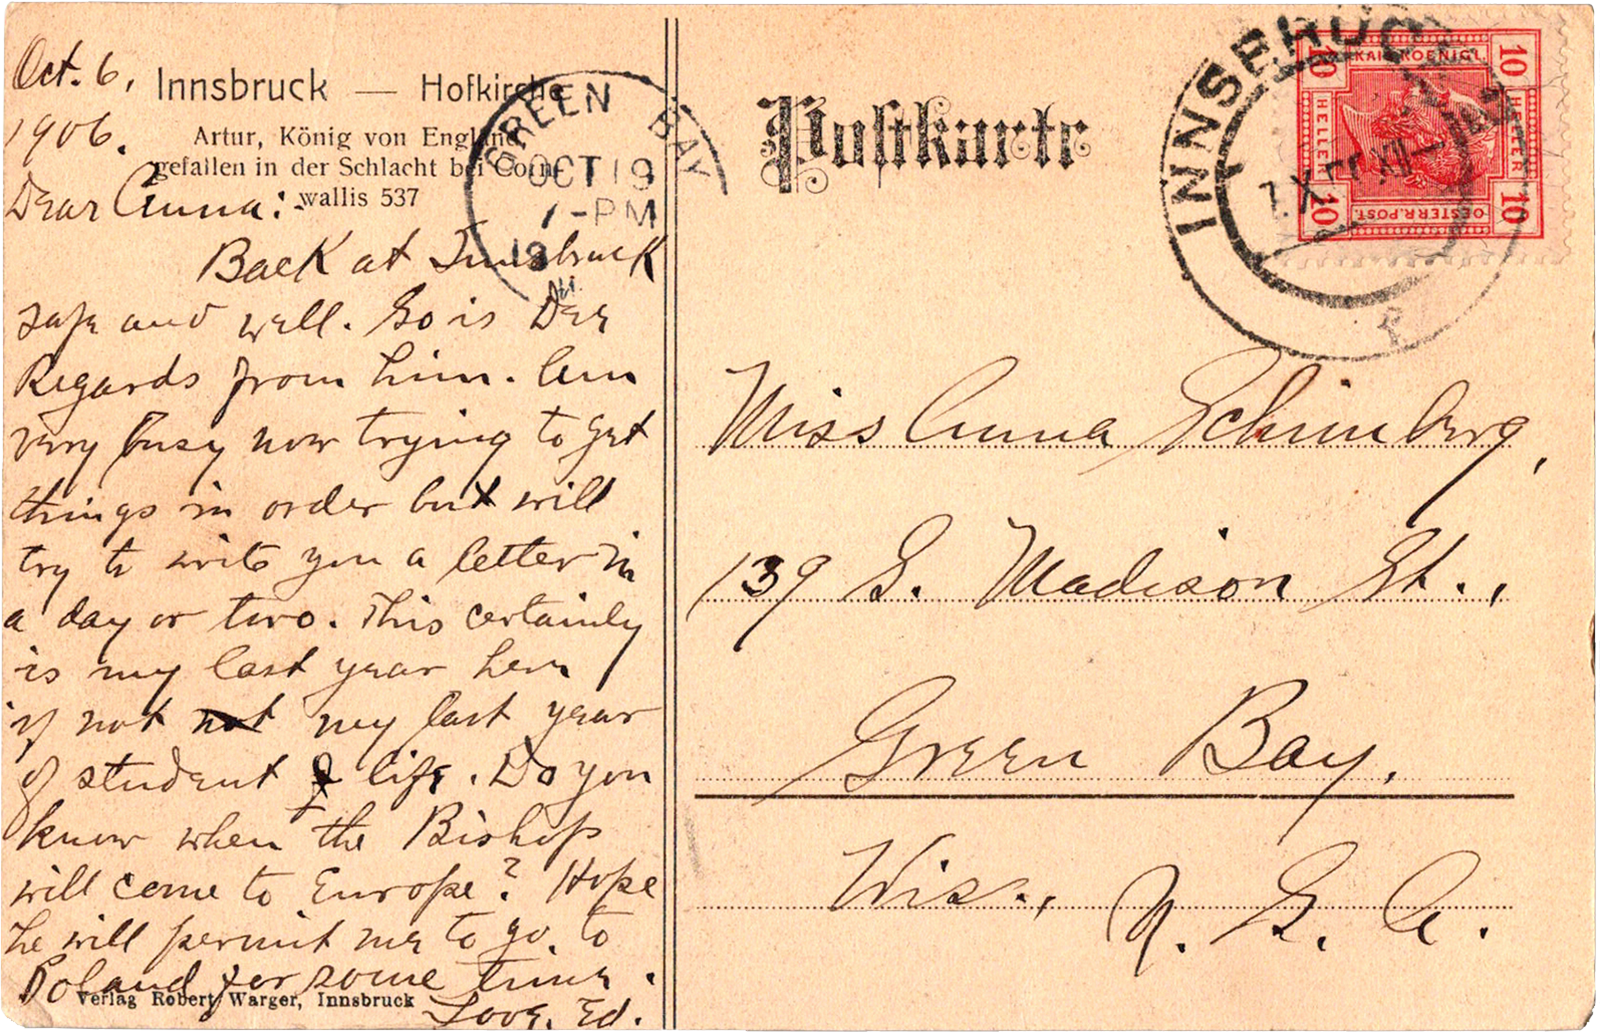 Oct. 6,
1906.
Innsbruck — Hofkirche
Artur, König von England
gefallen in der Schlacht bei Corn-
wallis 537
Dear Anna:-
Back at Innsbruck
safe and well. So is Dee
Regards from him. Am
very busy now trying to get
things in order but will
try to write you a letter in
a day or two. This certainly
is my last year here
if not not my last year
of student life. Do you
know when the Bishop
will come to Europe? Hope
he will permit me to go to
Poland for some time.
Love, Ed.
Verlag Robert Warger, Innsbruck
GREEN BAY
OCT 19
7-PM
19
Postkarte
INNSBRUCK
KAIS. KOENIGL.
10 10
HELLER HELLER
10 10
OESTERR. POST.
Miss Anna Schimberg,
139 S. Madison St.,
Green Bay.
Wis., U. S. A.